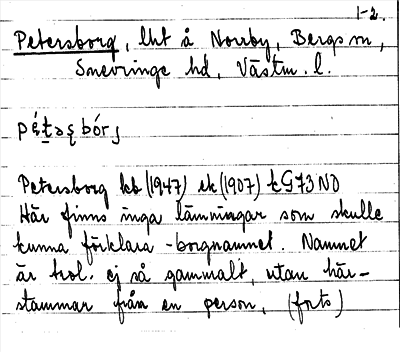 1-2.
Petersborg, lht å Norrby, Bergs sn,
Snevringe hd, Västm. l.
Petersborg kb (1947) ek (1907) tG73NO
Här finns inga lämningar som skulle
kunna förklara -borgnamnet. Namnet
är trol. ej så gammalt, utan här-
stammar från en person, (forts)